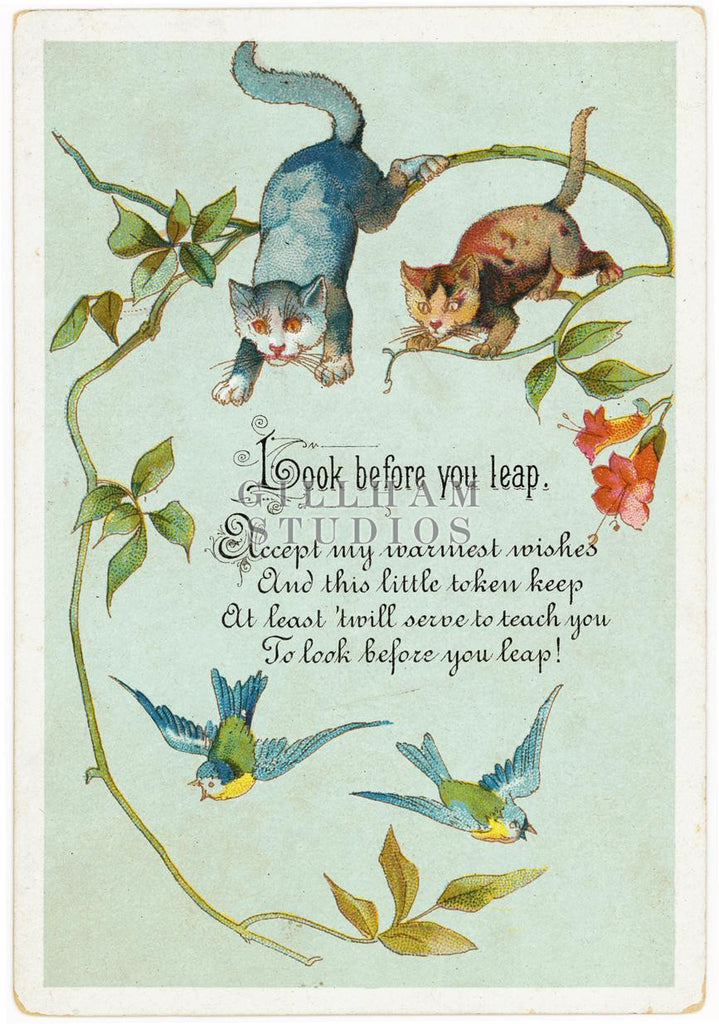 Look before you leap.
GILLHAM
STUDIOS
Accept my warmest wishes
And this little token keep
At least 'twill serve to teach you
To look before you leap!